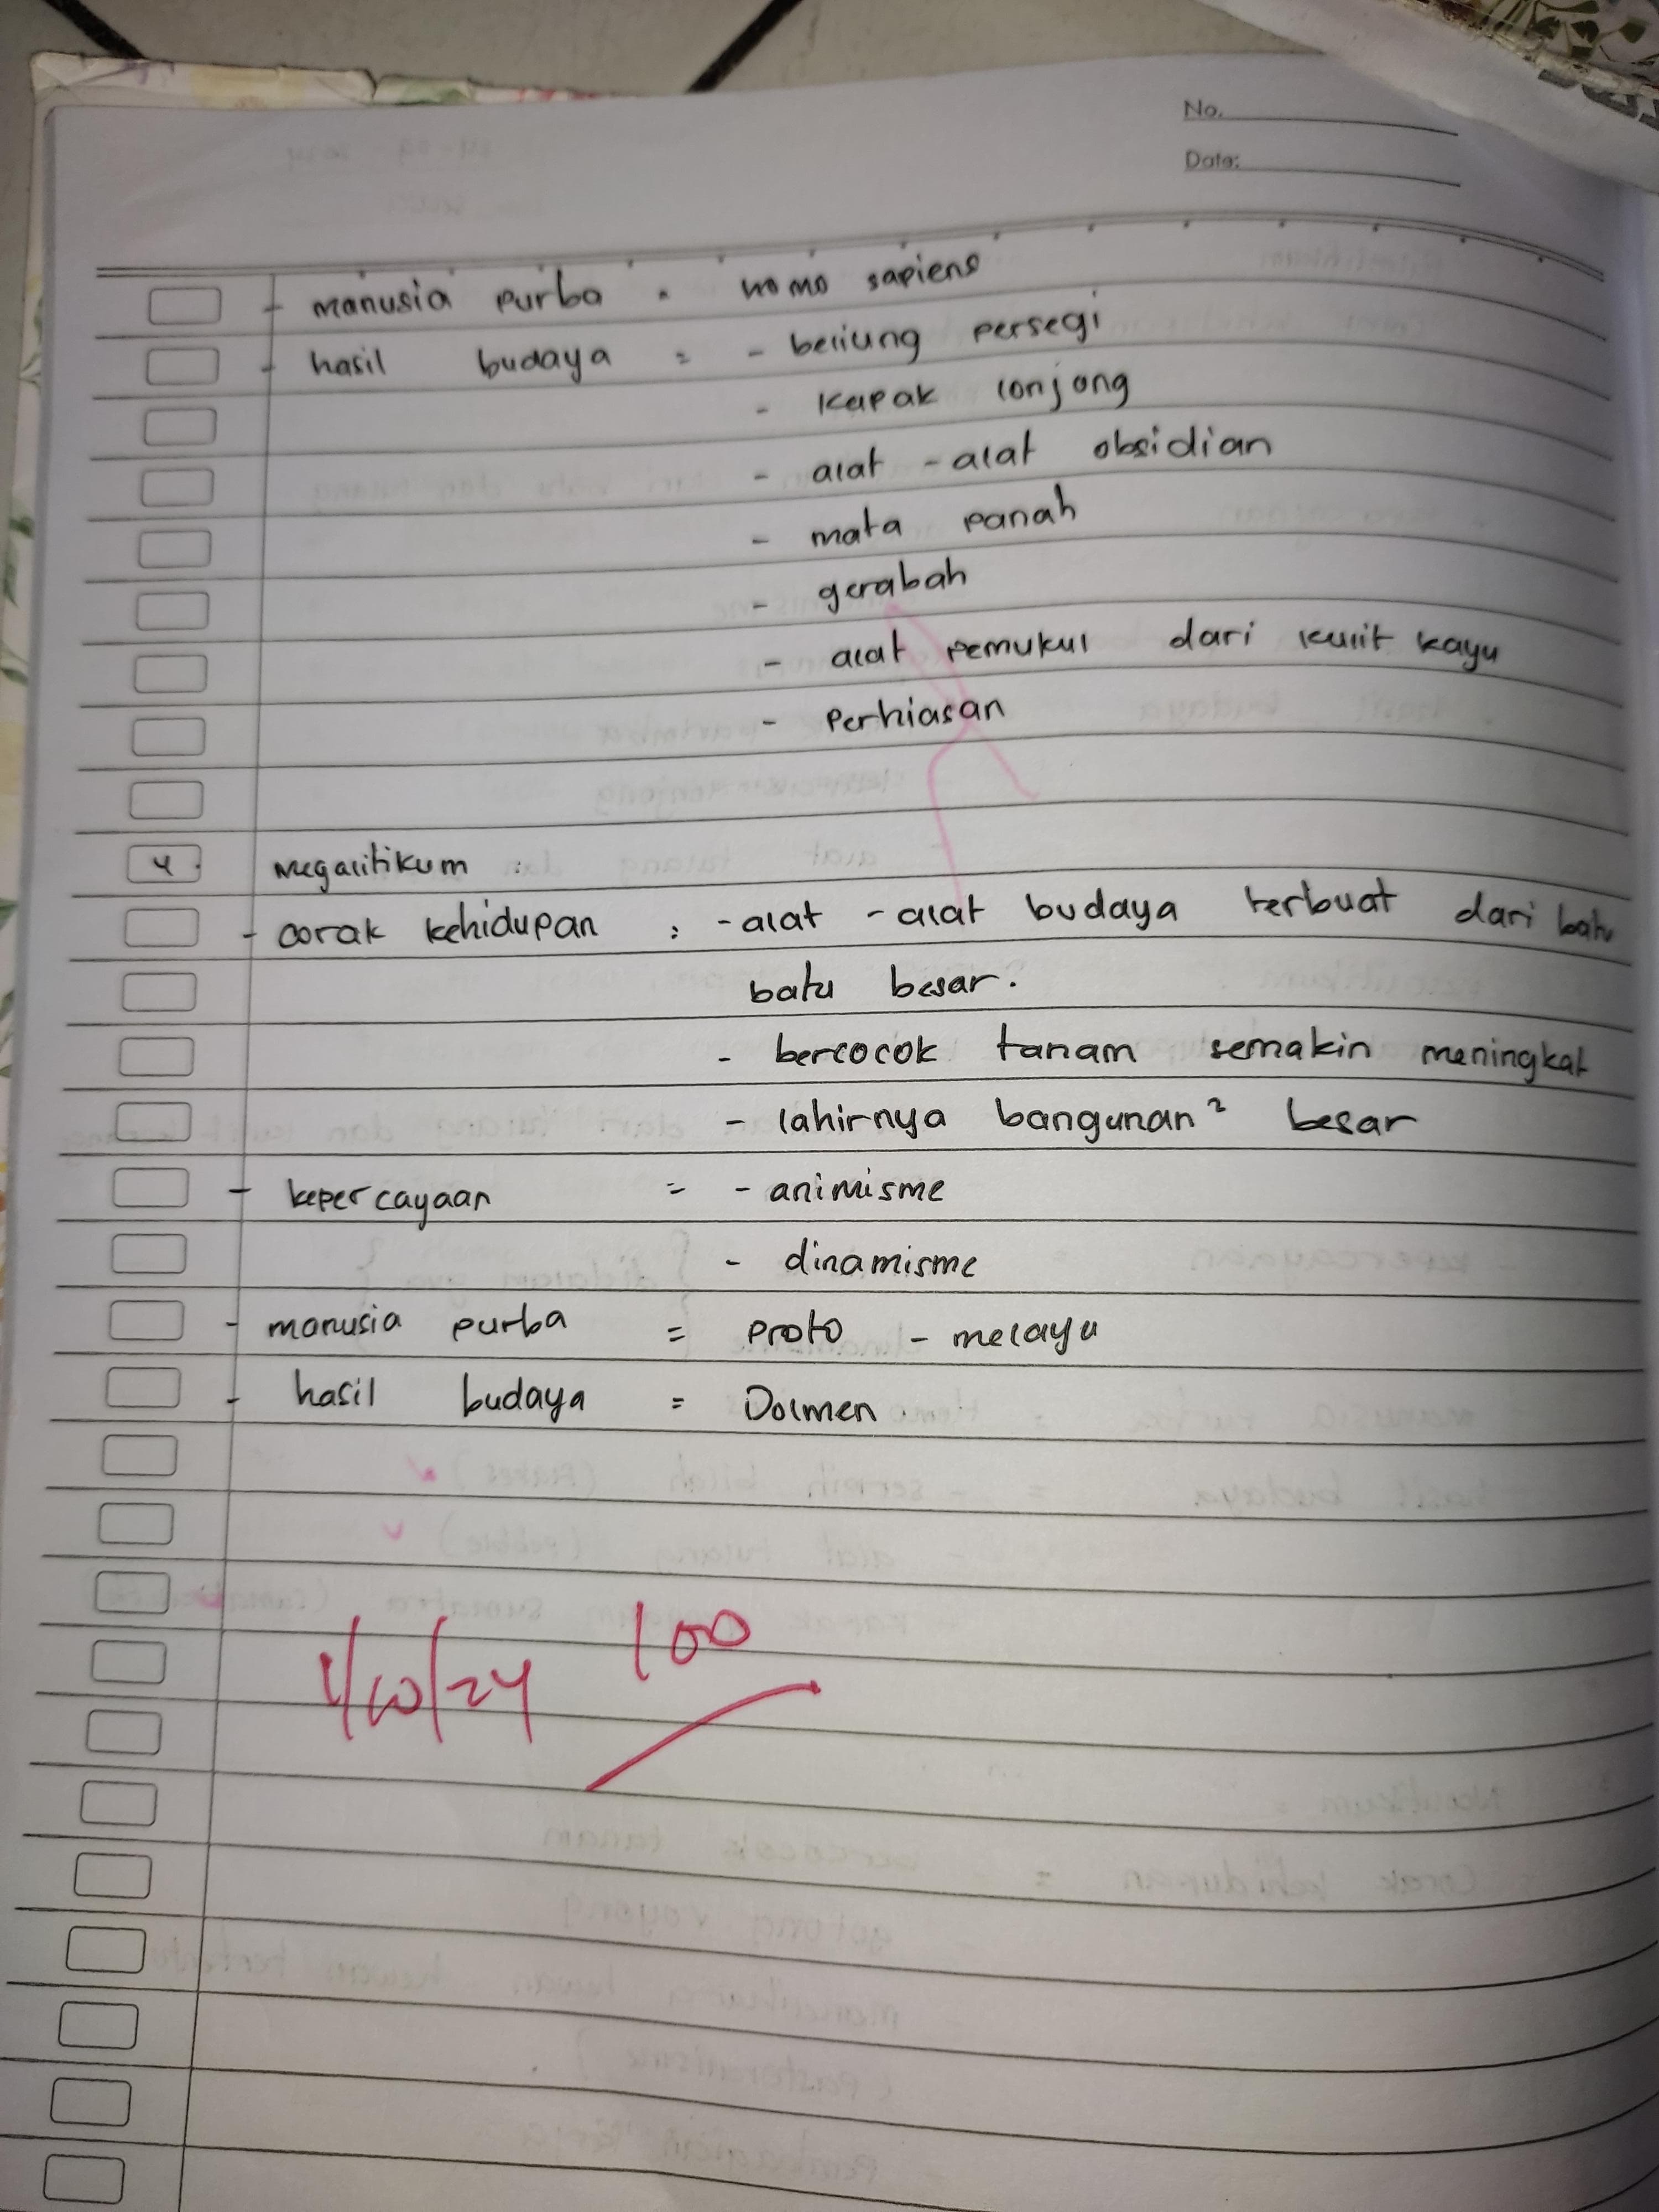 No.
Date:
- manusia purba = homo sapiens
- hasil budaya = - beliung persegi
- kapak lonjong
- alat - alat obsidian
- mata panah
- gerabah
- alat pemukul dari kulit kayu
- Perhiasan
4. Megalitikum :
- corak kehidupan : - alat - alat budaya terbuat dari batu
batu besar.
- bercocok tanam semakin meningkat
- lahirnya bangunan² besar
- kepercayaan = - animisme
- dinamisme
- manusia purba = proto - melayu
- hasil budaya = Dolmen.
1/10/24 100